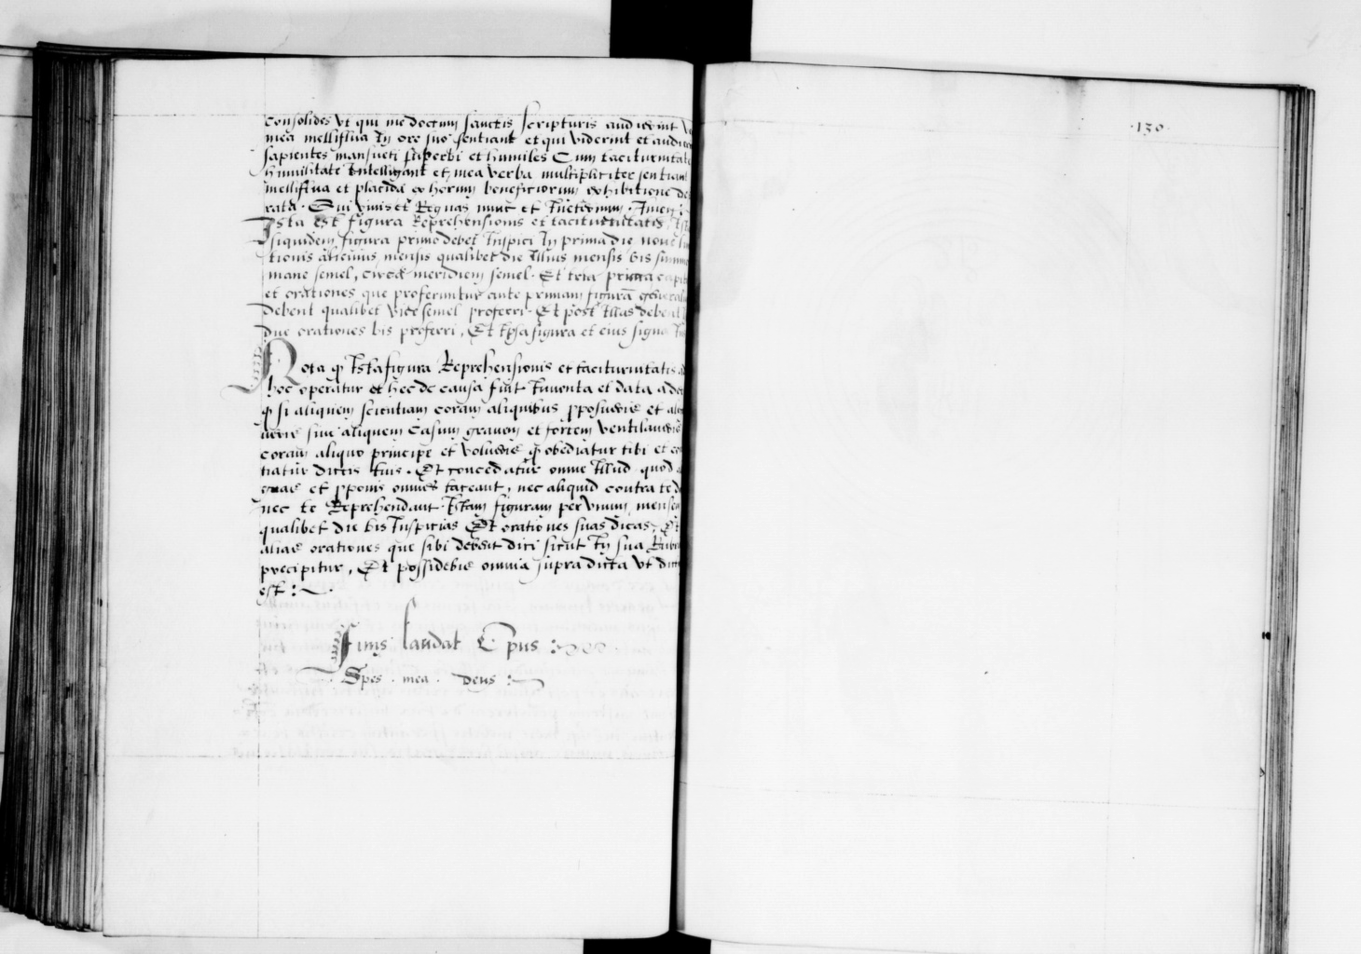 consolides vt qui me doctum sanctis scripturis audierint
mea melliflua In ore suo sentiant et qui viderint et audie
sapientes mansueti superbi et humiles Cum taciturnitate
humilitate Intelligant et mea verba multipliciter sentiant
melliflua et placida ex horum beneficiorum exhibitione de
rata. Qui viuis et Regnas nunc et Ineternum. Amen:
Ista Est figura Reprehensionis et taciturnitatis,
siquidem figura primo debet Inspici In prima die noue
tionis alicuius mensis qualibet die Illius mensis bis
mane semel, circa meridiem semel. Et tria prima
et orationes que proferuntur ante primam figurã
Debent qualibet vice semel proferri. Et post Illas debent
due orationes bis proferri, Et Ipsa figura et eius signa
Nota q Ista figura Reprehensionis et taciturnitatis
hoc operatur et hec de causa fuit Inuenta et data
q si aliquem scientiam coram aliquibus pposueris et
ueris siue aliquem Casum grauem et fortem ventilaueris
coram aliquo principe et volueris q obediatur tibi et
tiatur dictis tuis. Et concedatur omne Illud quod
et pponis omnes taceant, nec aliquid contra te
nec te Reprehendant. Istam figuram per vnum mensem
qualibet die bis Inspicias Et orationes suas dicas, Et
alias orationes que sibi debent dici sicut In sua
precipitur, Et possidebis omnia supradicta vt
est:
Finis laudat Opus:
Spes. mea. Deus:
.130.